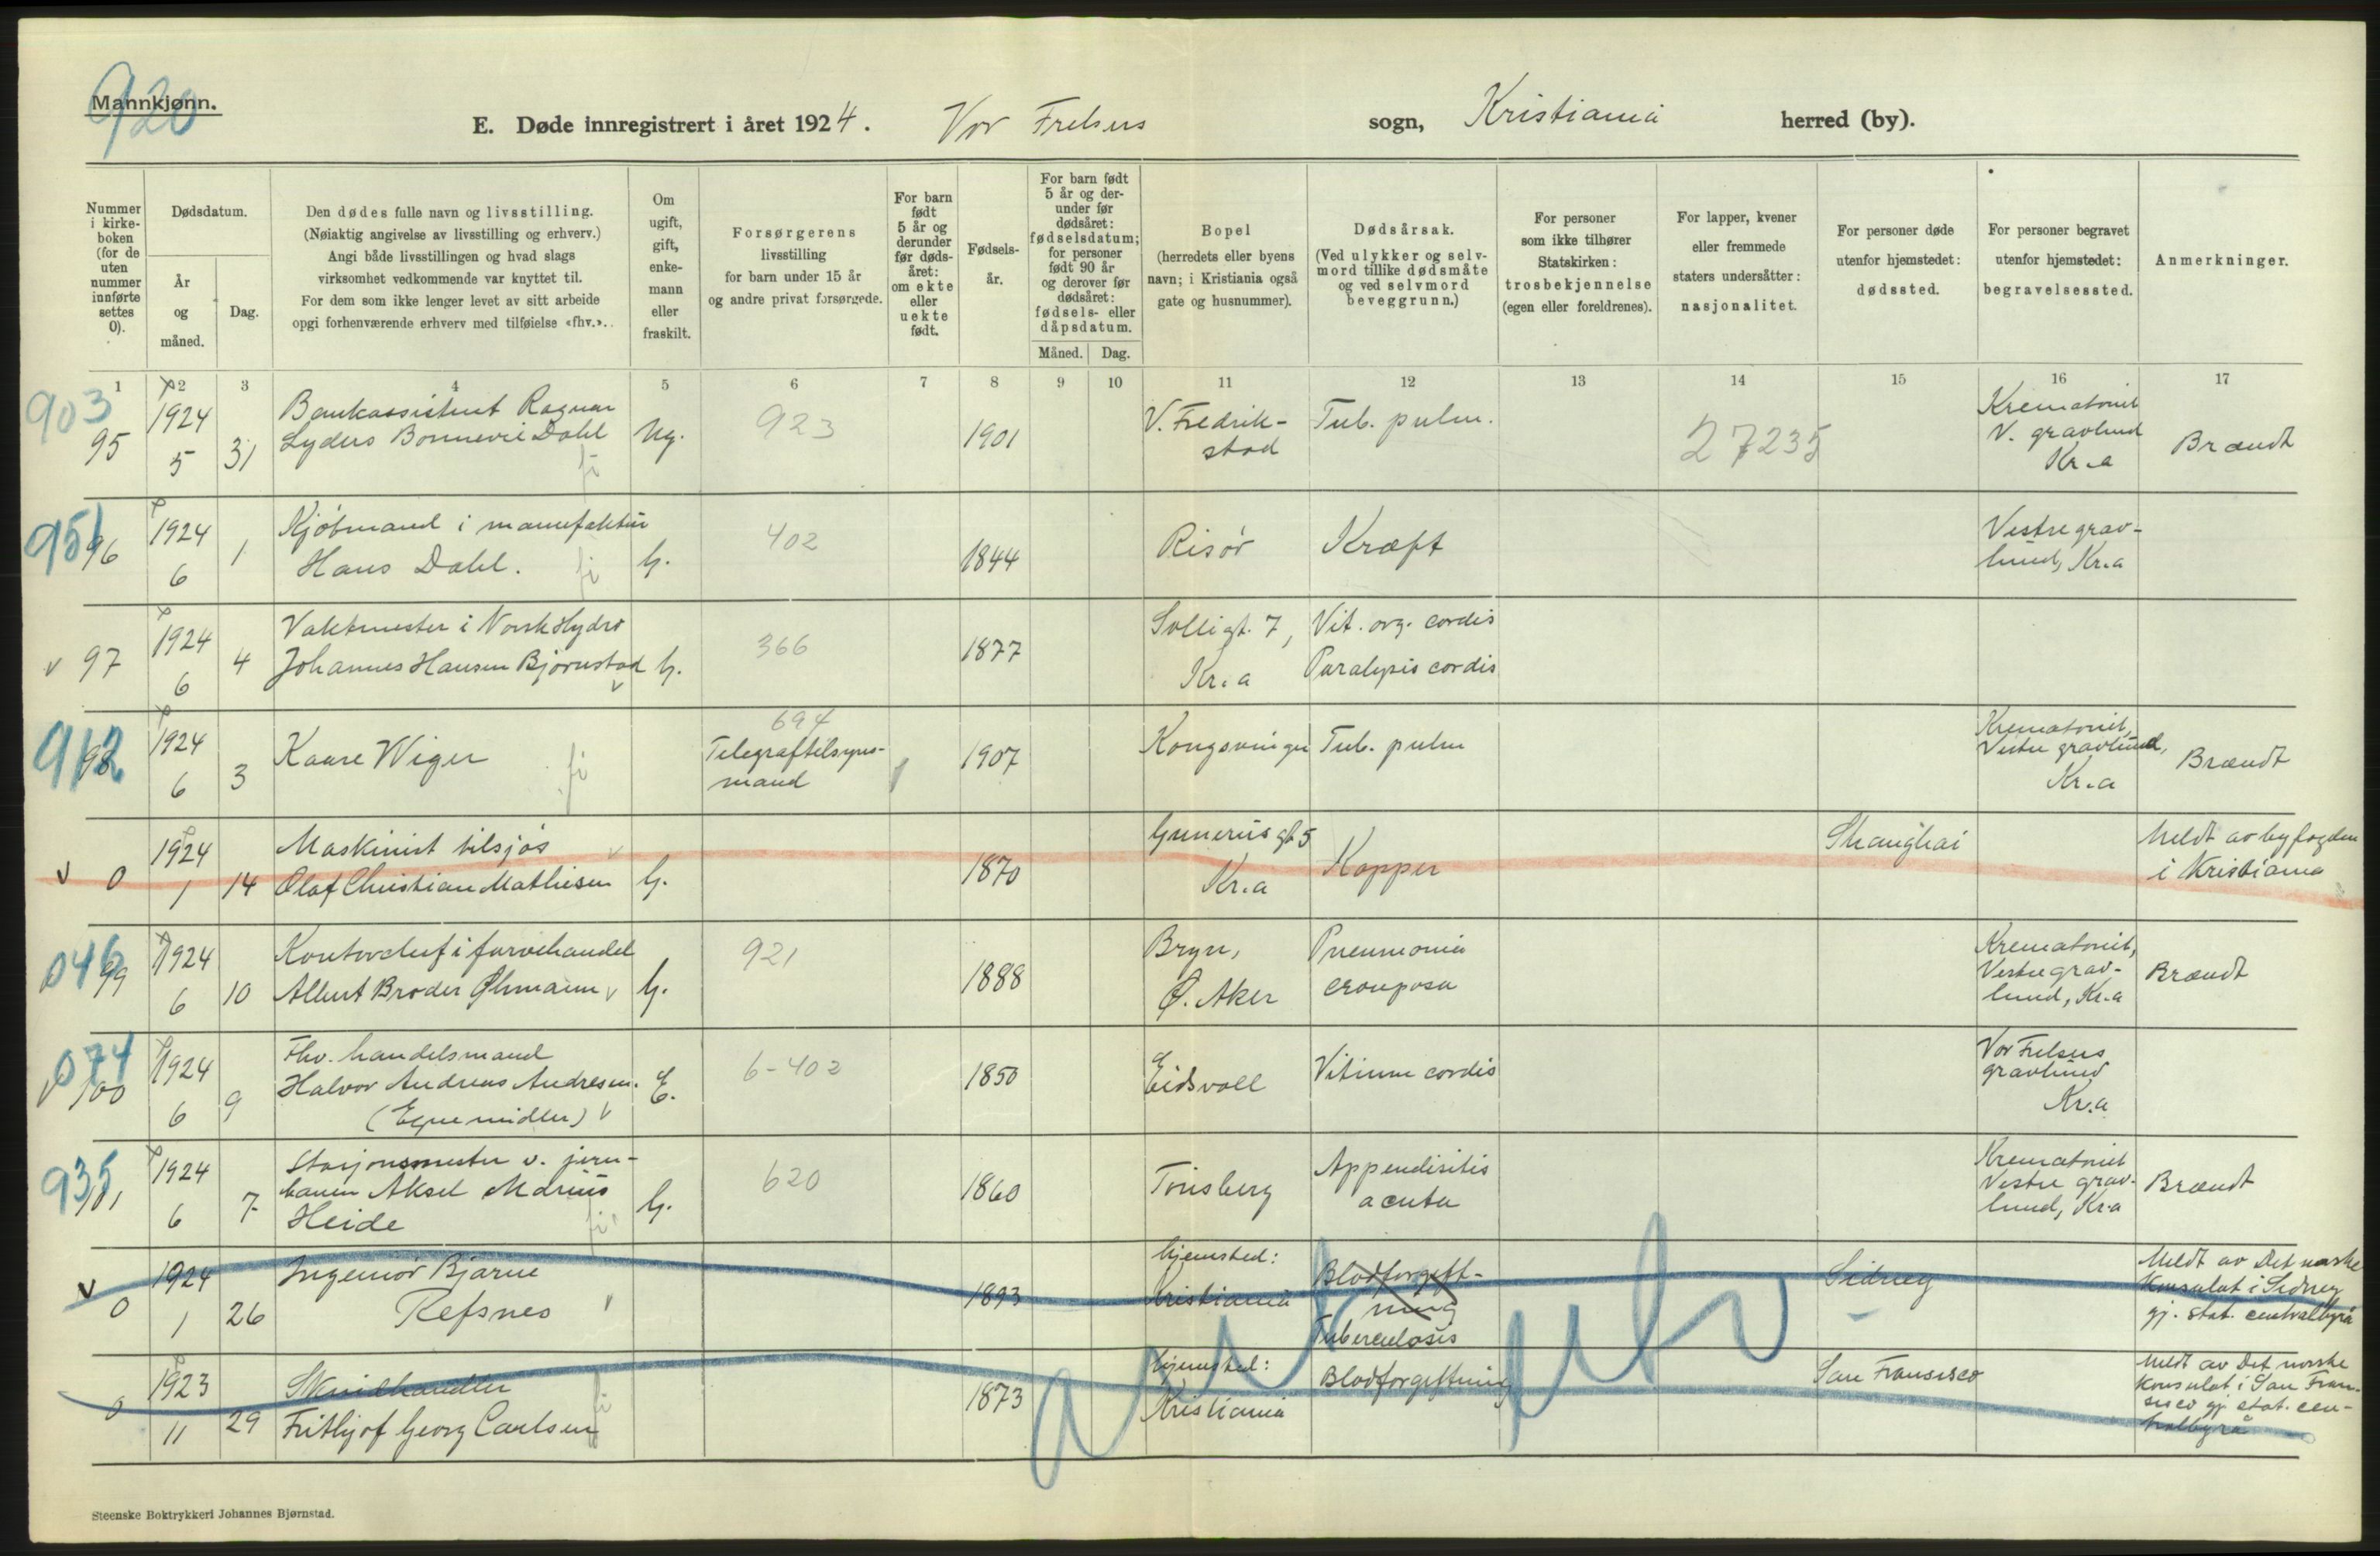 920
Mannkjønn.
E. Døde innregistrert i året 1924. Vor Frelsers sogn, Kristiania herred (by).
Nummer i kirkeboken (for de uten nummer innførte settes 0).
Dødsdatum.
År og måned.
Dag.
Den dødes fulle navn og livsstilling.
(Nøiaktig angivelse av livsstilling og erhverv.)
Angi både livsstillingen og hvad slags
virksomhet vedkommende var knyttet til.
For dem som ikke lenger levet av sitt arbeide
opgi forhenværende erhverv med tilføielse «fhv.».
Om ugift, gift, enkemann eller fraskilt.
Forsørgerens
livsstilling
for barn under 15 år
og andre privat forsørgede.
For barn født 5 år og derunder før dødsåret: om ekte eller uekte født.
Fødselsår.
For barn født 5 år og derunder før dødsåret: fødselsdatum; for personer født 90 år og derover før dødsåret: fødsels- eller dåpsdatum.
Måned. Dag.
Bopel
(herredets eller byens
navn; i Kristiania også
gate og husnummer).
Dødsårsak.
(Ved ulykker og selvmord tillike dødsmåte og ved selvmord beveggrunn.)
For personer
som ikke tilhører
Statskirken:
trosbekjennelse
(egen eller foreldrenes).
For lapper, kvener
eller fremmede
staters undersåtter:
nasjonalitet.
For personer døde
utenfor hjemstedet:
dødssted.
For personer begravet
utenfor hjemstedet:
begravelsessted.
Anmerkninger.
1 2 3 4 5 6 7 8 9 10 11 12 13 14 15 16 17
903
95 1924 5 31 Bankassistent Ragnar
Lyders Bonnevie Dahl Ug. 923 1901 V. Fredrikstad Tub. pulm. 27235 Krematoriet
V. gravlund
Kr.a Brandt
951
96 1924 6 1 Kjøbmand i manufaktur
Hans Dahl. G. 402 1844 Risør Kræft Vestre gravlund, Kr.a
v 97 1924 6 4 Vaktmester i Norsk Hydro
Johannes Hansen Bjørnstad G. 366 1877 Solligt. 7,
Kr.a Vit. org. cordis
Paralysis cordis
912
98 1924 6 3 Kaare Wiger 694
Telegraftilsynsmand 1907 Kongsvinger Tub. pulm Krematoriet,
Vestre gravlund,
Kr.a Brandt
v 0 1924 1 14 Maskinist tilsjøs
Olaf Christian Mathisen G. 1870 Gunerius gt 5
Kr.a Kopper Shanghai Meldt av byfogden
i Kristiania
046
99 1924 6 10 Kontorchef i farvehandel
Albert Broder Øhmann v G. 921 1888 Bryn,
Ø. Aker Pneumonia
crouposa Krematoriet,
Vestre gravlund, Kr.a Brandt
074
v 100 1924 6 9 Fhv. handelsmand
Halvor Andreas Andresen.
(Egne midler) v E. 6-402 1850 Eidsvoll Vitium cordis Vor Frelsers
gravlund
Kr.a
935
101 1924 6 7 Stasjonsmester v. jernbanen Aksel Marius
Heide G. 620 1860 Tønsberg Appendisitis
acuta Krematoriet
Vestre gravlund, Kr.a Brandt
v 0 1924 1 26 Ingeniør Bjarne
Refsnes v 1893 hjemsted:
Kristiania Blodforgiftning
Tuberculosis Sidney Meldt av Det norske
Konsulat i Sidney
gj. stat. centralbyrå
0 1923 11 29
Frithjof Georg Carlsen 1873 hjemsted:
Kristiania Blodforgiftning San Fransisco Meldt av Det norske
Konsulat i San Fransisco gj. stat. centralbyrå
Steenske Boktrykkeri Johannes Bjørnstad.